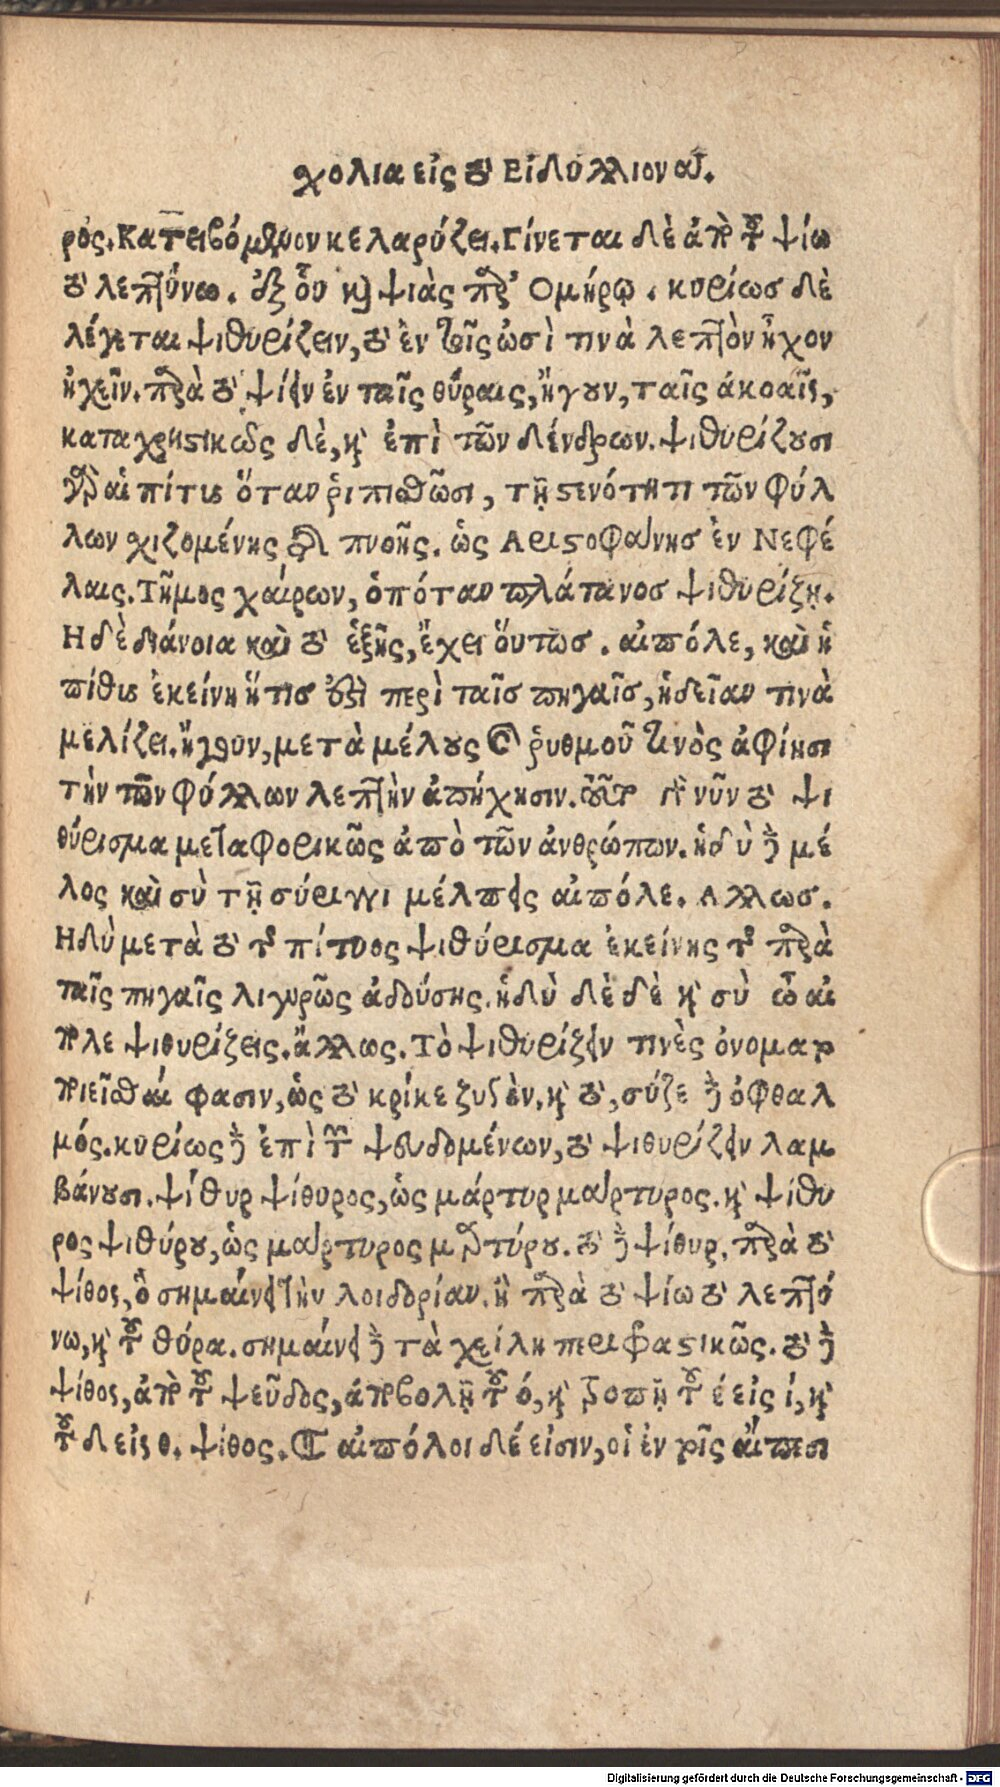 χολια εἰς τὸ Εἰδύλλιον αʹ.
ρός. Κατειβόμενον κελαρύζει. Γίνεται δὲ ἀπὸ τοῦ ψίω
τὸ λεπτύνω. ἐξ οὗ καὶ ψιὰς παρ' Ομήρῳ. κυρίωσ δὲ
λέγεται ψιθυρίζειν, τὸ ἐν τοῖς ὠσὶ τινὰ λεπτὸν ἦχον
ἠχεῖν. παρὰ τὸ ψίειν ἐν ταῖς θύραις, ἤγουν, ταῖς ἀκοαῖς,
καταχρηστικῶς δὲ, καὶ ἐπὶ τῶν δένδρων. ψιθυρίζουσι
γὰρ αἱ πίτυς ὅταν ῥιπισθῶσι, τῇ στενότητι τῶν φύλ
λων σχιζομένης τῆς πνοῆς. ὡς Αριστοφάνησ ἐν Νεφέ
λαις. Τῆμος χαίρων, ὁπόταν πλάτανοσ ψιθυρίζῃ.
Η δὲ διάνοια καὶ τὸ ἑξῆς, ἔχει ὅυτωσ. αἰπόλε, καὶ ἡ
πίθυς ἐκείνη ἥτισ ἐστὶ περὶ ταῖσ πηγαῖσ, ἡδεῖαν τινὰ
μελίζει. ἤγουν, μετὰ μέλους καὶ ῥυθμοῦ τινὸς ἀφίησι
τὴν τῶν φύλλων λεπτὴν ἀπήχησιν. νῦν τὸ ψι
θύρισμα μεταφορικῶς ἀπὸ τῶν ἀνθρώπων. ἡδὺ δὲ μέ
λος καὶ σὺ τῇ σύριγγι μέλπεις αἰπόλε. Αλλωσ.
Ηδὺ μετὰ τὸ τῆς πίτυος ψιθύρισμα ἐκείνης τῆς παρὰ
ταῖς πηγαῖς λιγυρῶς ἀδούσης. ἡδὺ δὲ δὲ καὶ σὺ ὦ αἰ
πόλε ψιθυρίζεις. ἄλλως. Τὸ ψιθυρίζειν τινὲς ὀνοματ
ποιεῖσθαί φασιν, ὡς τὸ κρίκε ζυγὸν, καὶ τὸ, σύζε δὲ ὀφθαλ
μός. κυρίως δὲ ἐπὶ τῶν ψευδομένων, τὸ ψιθυρίζειν λαμ
βάνουσι. ψίθυρ ψίθυρος, ὡς μάρτυρ μάρτυρος. καὶ ψίθυ
ρος ψιθύρου, ὡς μάρτυρος μαρτύρου. τὸ δὲ ψίθυρ, παρὰ τὸ
ψίθος, ὃ σημαίνει τὴν λοιδορίαν. ἢ παρὰ τὸ ψίω τὸ λεπτύ
νω, καὶ τοῦ θύρα. σημαίνει δὲ τὰ χείλη περιφραστικῶς. τὸ δὲ
ψίθος, ἀπὸ τοῦ ψεῦδος, ἀποβολῇ τοῦ ύ, καὶ τροπῇ τοῦ έ εἰς ί, καὶ
τοῦ δ εἰς θ. ψίθος. ¶ αἰπόλοι δέ εἰσιν, οἱ ἐν τοῖς αἴπεσι